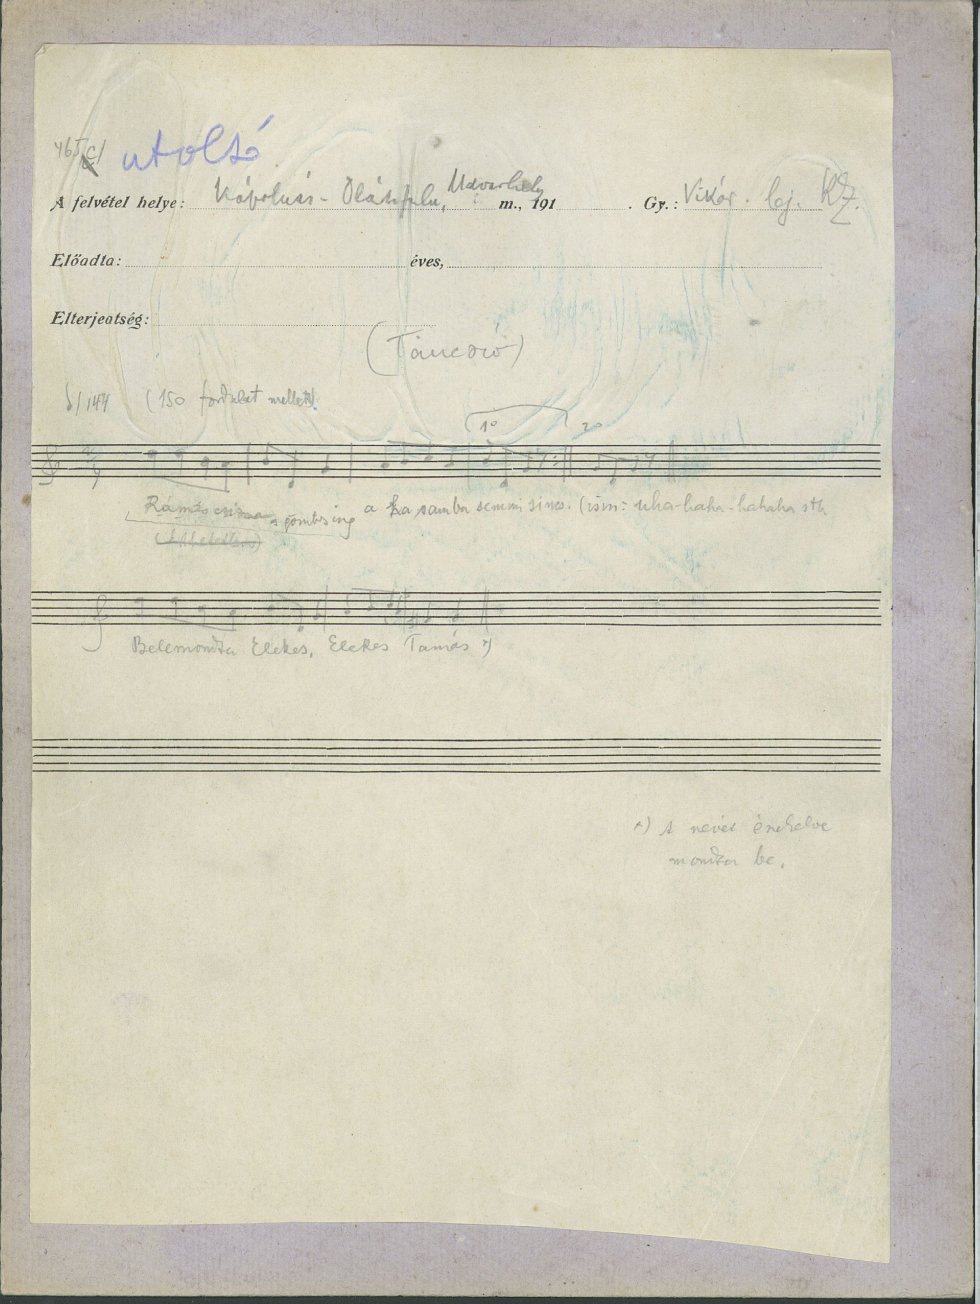 465 c) utolsó
A felvétel helye: Kápolnás-Oláhfalu, Udvarhely m., 191 . Gy.: Vikár. lej. KZ.
Előadta: éves,
Elterjedtség:
(Táncszó)
144 (150 fordulat mellett).
1º 2º
a gombos ing a ban semmi sincs. uha-haha-hahaha stb
Belemondta Elekes, Elekes Tamás *)
*) A nevét énekelve
mondta be.